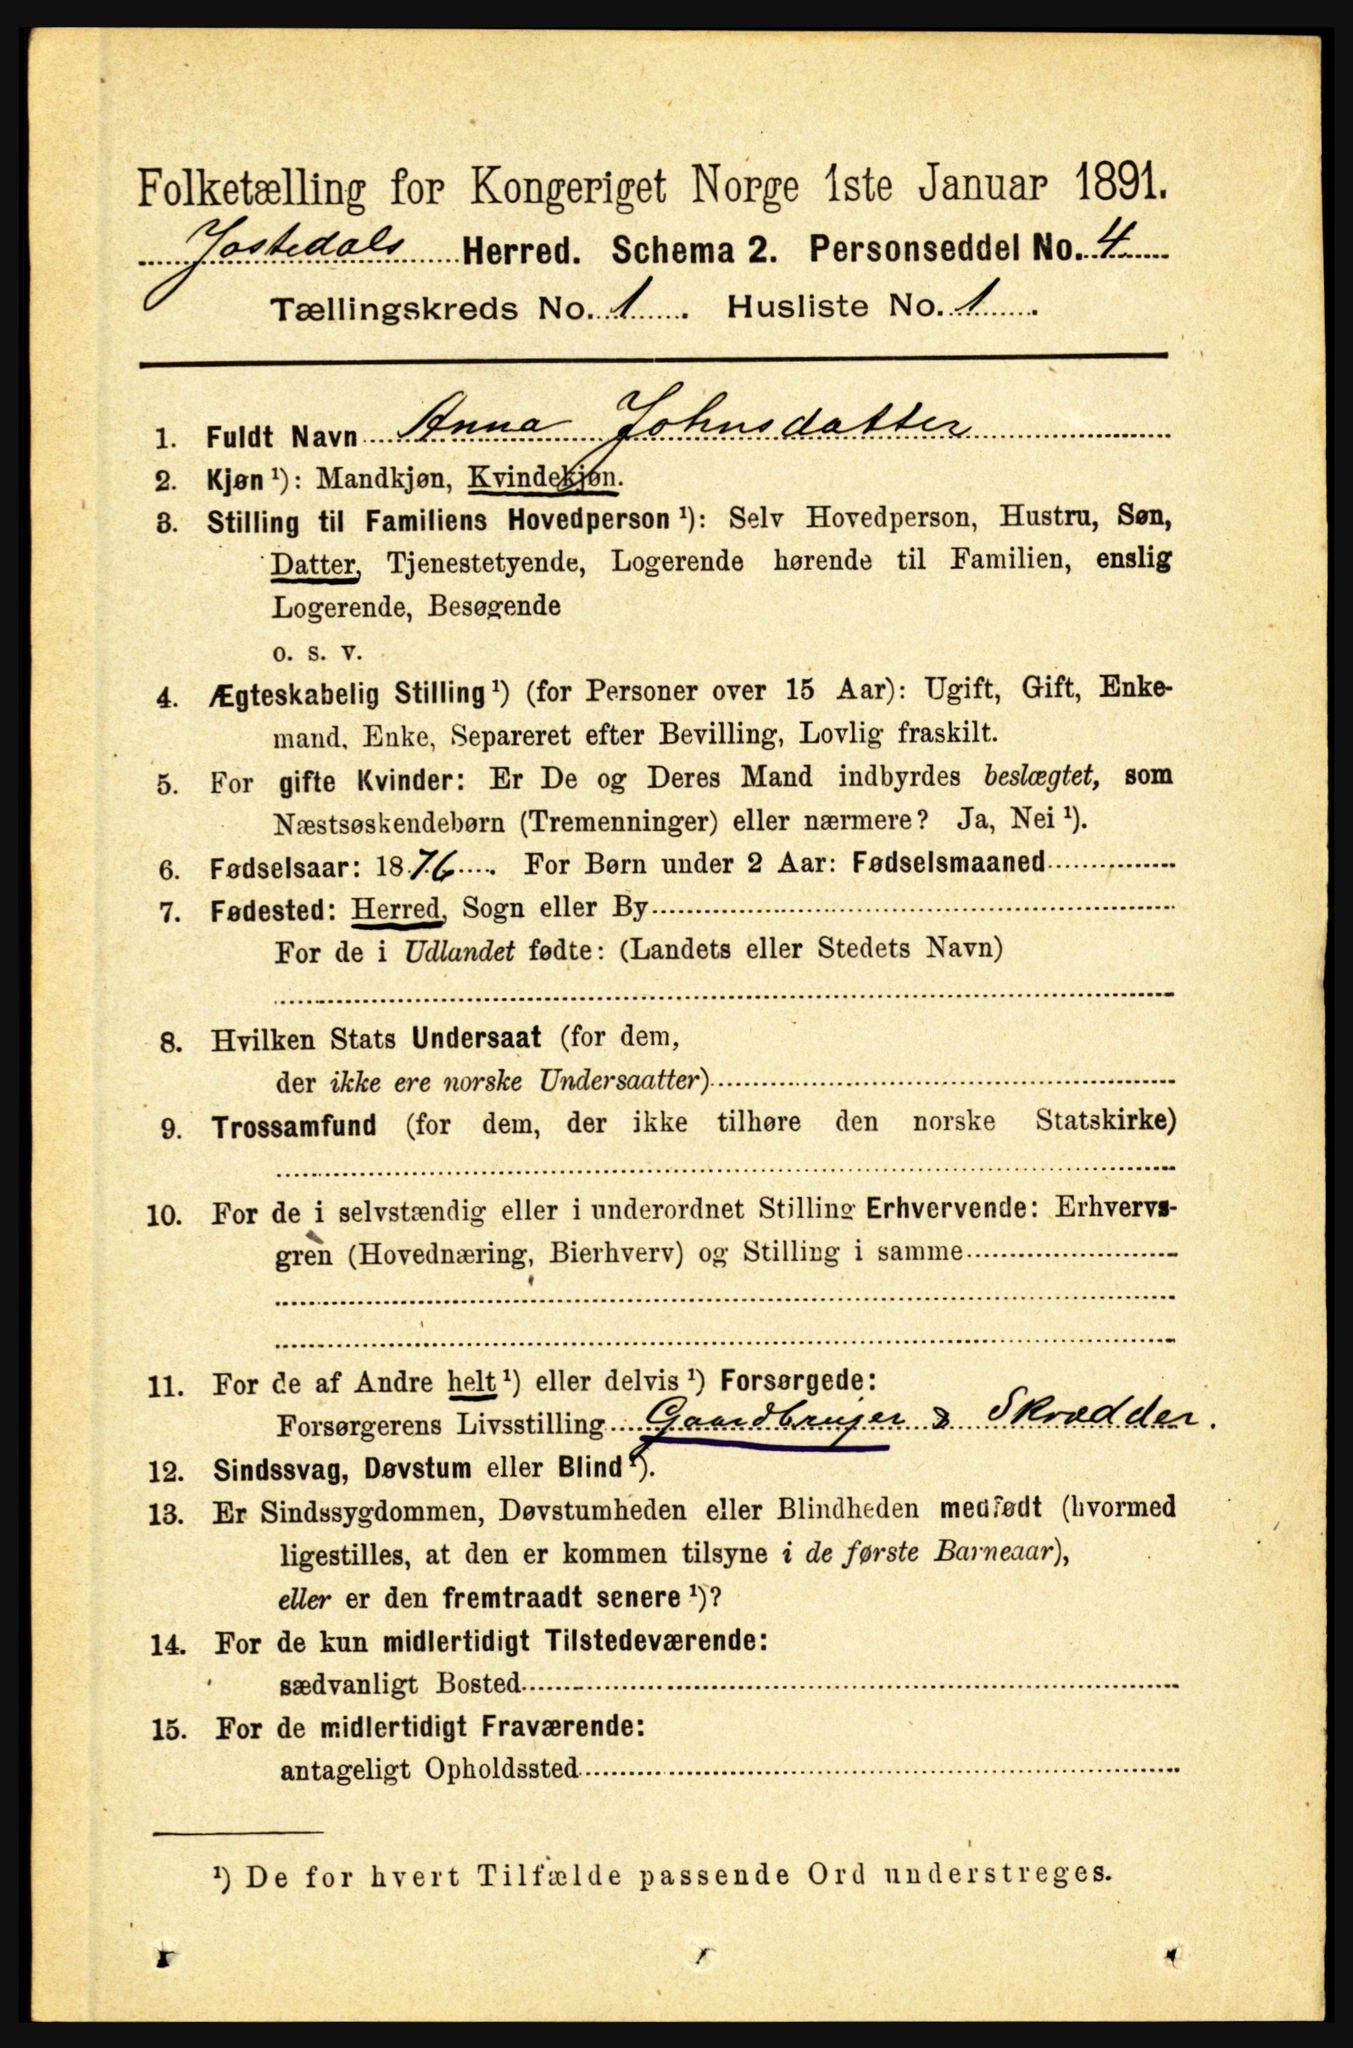 Folketælling for Kongeriget Norge 1ste Januar 1891.
Jostedals Herred. Schema 2. Personseddel No. 4
Tællingskreds No. 1. Husliste No. 1.
1. Fuldt Navn Anna Johnsdatter
2. Kjøn ¹): Mandkjøn, Kvindekjøn.
3. Stilling til Familiens Hovedperson ¹): Selv Hovedperson, Hustru, Søn,
Datter, Tjenestetyende, Logerende hørende til Familien, enslig
Logerende, Besøgende
o. s. v.
4. Ægteskabelig Stilling ¹) (for Personer over 15 Aar): Ugift, Gift, Enke-
mand, Enke, Separeret efter Bevilling, Lovlig fraskilt.
5. For gifte Kvinder: Er De og Deres Mand indbyrdes beslægtet, som
Næstsøskendebørn (Tremenninger) eller nærmere? Ja, Nei ¹).
6. Fødselsaar: 1876. For Børn under 2 Aar: Fødselsmaaned
7. Fødested: Herred, Sogn eller By
For de i Udlandet fødte: (Landets eller Stedets Navn)
8. Hvilken Stats Undersaat (for dem,
der ikke ere norske Undersaatter)
9. Trossamfund (for dem, der ikke tilhøre den norske Statskirke)
10. For de i selvstændig eller i underordnet Stilling Erhvervende: Erhvervs-
gren (Hovednæring, Bierhverv) og Stilling i samme
11. For de af Andre helt ¹) eller delvis ¹) Forsørgede:
Forsørgerens Livsstilling Gaardbruger & Skrædder.
12. Sindssvag, Døvstum eller Blind ¹).
13. Er Sindssygdommen, Døvstumheden eller Blindheden medfødt (hvormed
ligestilles, at den er kommen tilsyne i de første Barneaar),
eller er den fremtraadt senere ¹)?
14. For de kun midlertidigt Tilstedeværende:
sædvanligt Bosted
15. For de midlertidigt Fraværende:
antageligt Opholdssted
¹) De for hvert Tilfælde passende Ord understreges.